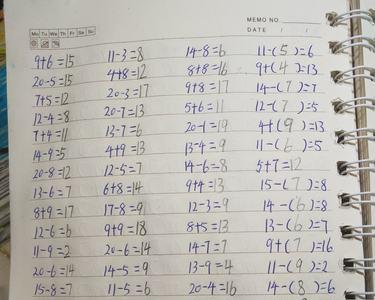 MEMO NO.
Mo Tu We Th Fr Sa Su
DATE / /
9+6=15 11-3=8 14-8=6 11-(5)=6
20-5=15 4+8=12 8+8=16 9+(4)=13
7+5=12 20-3=17 9+8=17 14-(7)=7
12-4=8 20-7=13 5+6=11 12-(7)=5
7+4=11 13-7=6 20-1=19 4+(9)=13
14-9=5 4+9=13 13-4=9 11-(6)=5
20-8=12 12-5=7 14-6=8 5+7=12
13-6=7 6+8=14 9+4=13 15-(7)=8
8+9=17 17-8=9 12-3=9 14-(6)=8
12-6=6 9+9=18 8+5=13 13-(6)=7
11-9=2 20-6=14 14-7=7 9+(7)=16
20-6=14 14-5=9 13-9=4 11-(9)=2
15-8=7 11-5=6 20-4=16 14-(8)=6